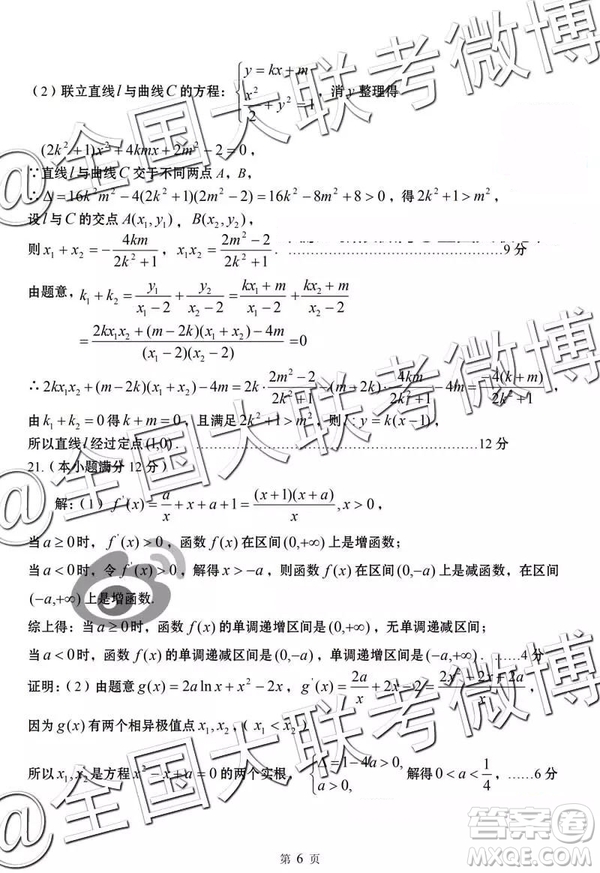 （2）联立直线 l 与曲线 C 的方程：{ y = kx + m, x²/2 + y² = 1，消 y 整理得
(2k² + 1)x² + 4kmx + 2m² − 2 = 0，
∵直线 l 与曲线 C 交于不同两点 A，B，
∴ Δ = 16k²m² − 4(2k² + 1)(2m² − 2) = 16k² − 8m² + 8 > 0，得 2k² + 1 > m²，
设 l 与 C 的交点 A(x₁, y₁)，B(x₂, y₂)，
则 x₁ + x₂ = −4km/(2k² + 1)，x₁x₂ = (2m² − 2)/(2k² + 1)．……9 分
由题意，k₁ + k₂ = y₁/(x₁ − 2) + y₂/(x₂ − 2) = (kx₁ + m)/(x₁ − 2) + (kx₂ + m)/(x₂ − 2)
= [2kx₁x₂ + (m − 2k)(x₁ + x₂) − 4m]/[(x₁ − 2)(x₂ − 2)] = 0
∴ 2kx₁x₂ + (m − 2k)(x₁ + x₂) − 4m = 2k · (2m² − 2)/(2k² + 1) − (m − 2k) · 4km/(2k² + 1) − 4m = − 4(k + m)/(2k² + 1) = 0，
由 k₁ + k₂ = 0 得 k + m = 0，且满足 2k² + 1 > m²，则 l : y = k(x − 1)，
所以直线 l 经过定点 (1,0)．……12 分
21.（本小题满分 12 分）
解：（1）f′(x) = a/x + x + a + 1 = (x + 1)(x + a)/x, x > 0，
当 a ≥ 0 时，f′(x) > 0，函数 f(x) 在区间 (0,+∞) 上是增函数；
当 a < 0 时，令 f′(x) > 0，解得 x > −a，则函数 f(x) 在区间 (0,−a) 上是减函数，在区间
(−a,+∞) 上是增函数.
综上得：当 a ≥ 0 时，函数 f(x) 的单调递增区间是 (0,+∞)，无单调递减区间；
当 a < 0 时，函数 f(x) 的单调递减区间是 (0,−a)，单调递增区间是 (−a,+∞)．……4 分
证明：（2）由题意 g(x) = 2a ln x + x² − 2x，g′(x) = 2a/x + 2x − 2 = (2x² − 2x + 2a)/x，
因为 g(x) 有两个相异极值点 x₁, x₂，（ x₁ < x₂ ）
所以 x₁, x₂ 是方程 x² − x + a = 0 的两个实根，{ Δ = 1 − 4a > 0, a > 0, 解得 0 < a < 1/4，……6 分
第 6 页
@全国大联考微博
@全国大联考微博
@全国大联考微博
答案圈
MXQE.COM